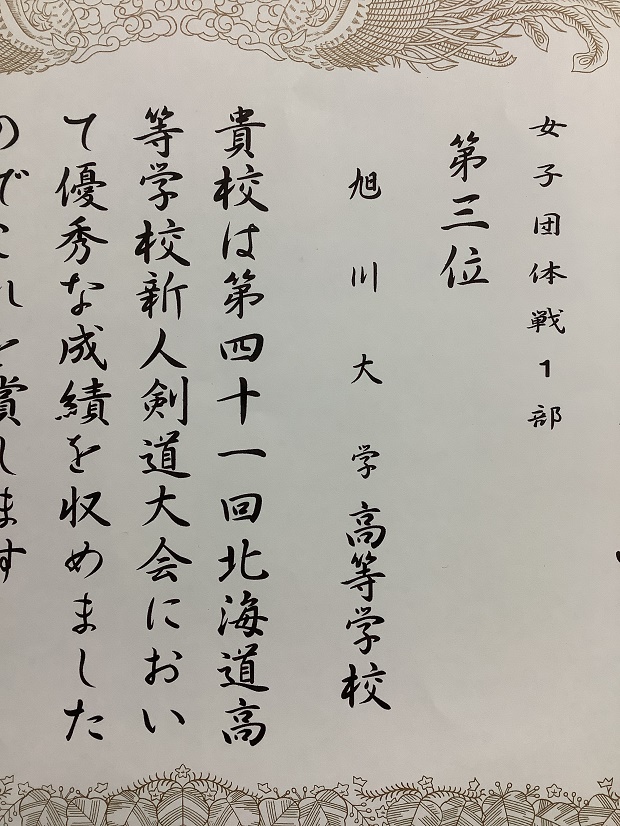 女子団体戦1部
第三位
旭川大学高等学校
貴校は第四十一回北海道高
等学校新人剣道大会におい
て優秀な成績を収めました
のでこれを賞します